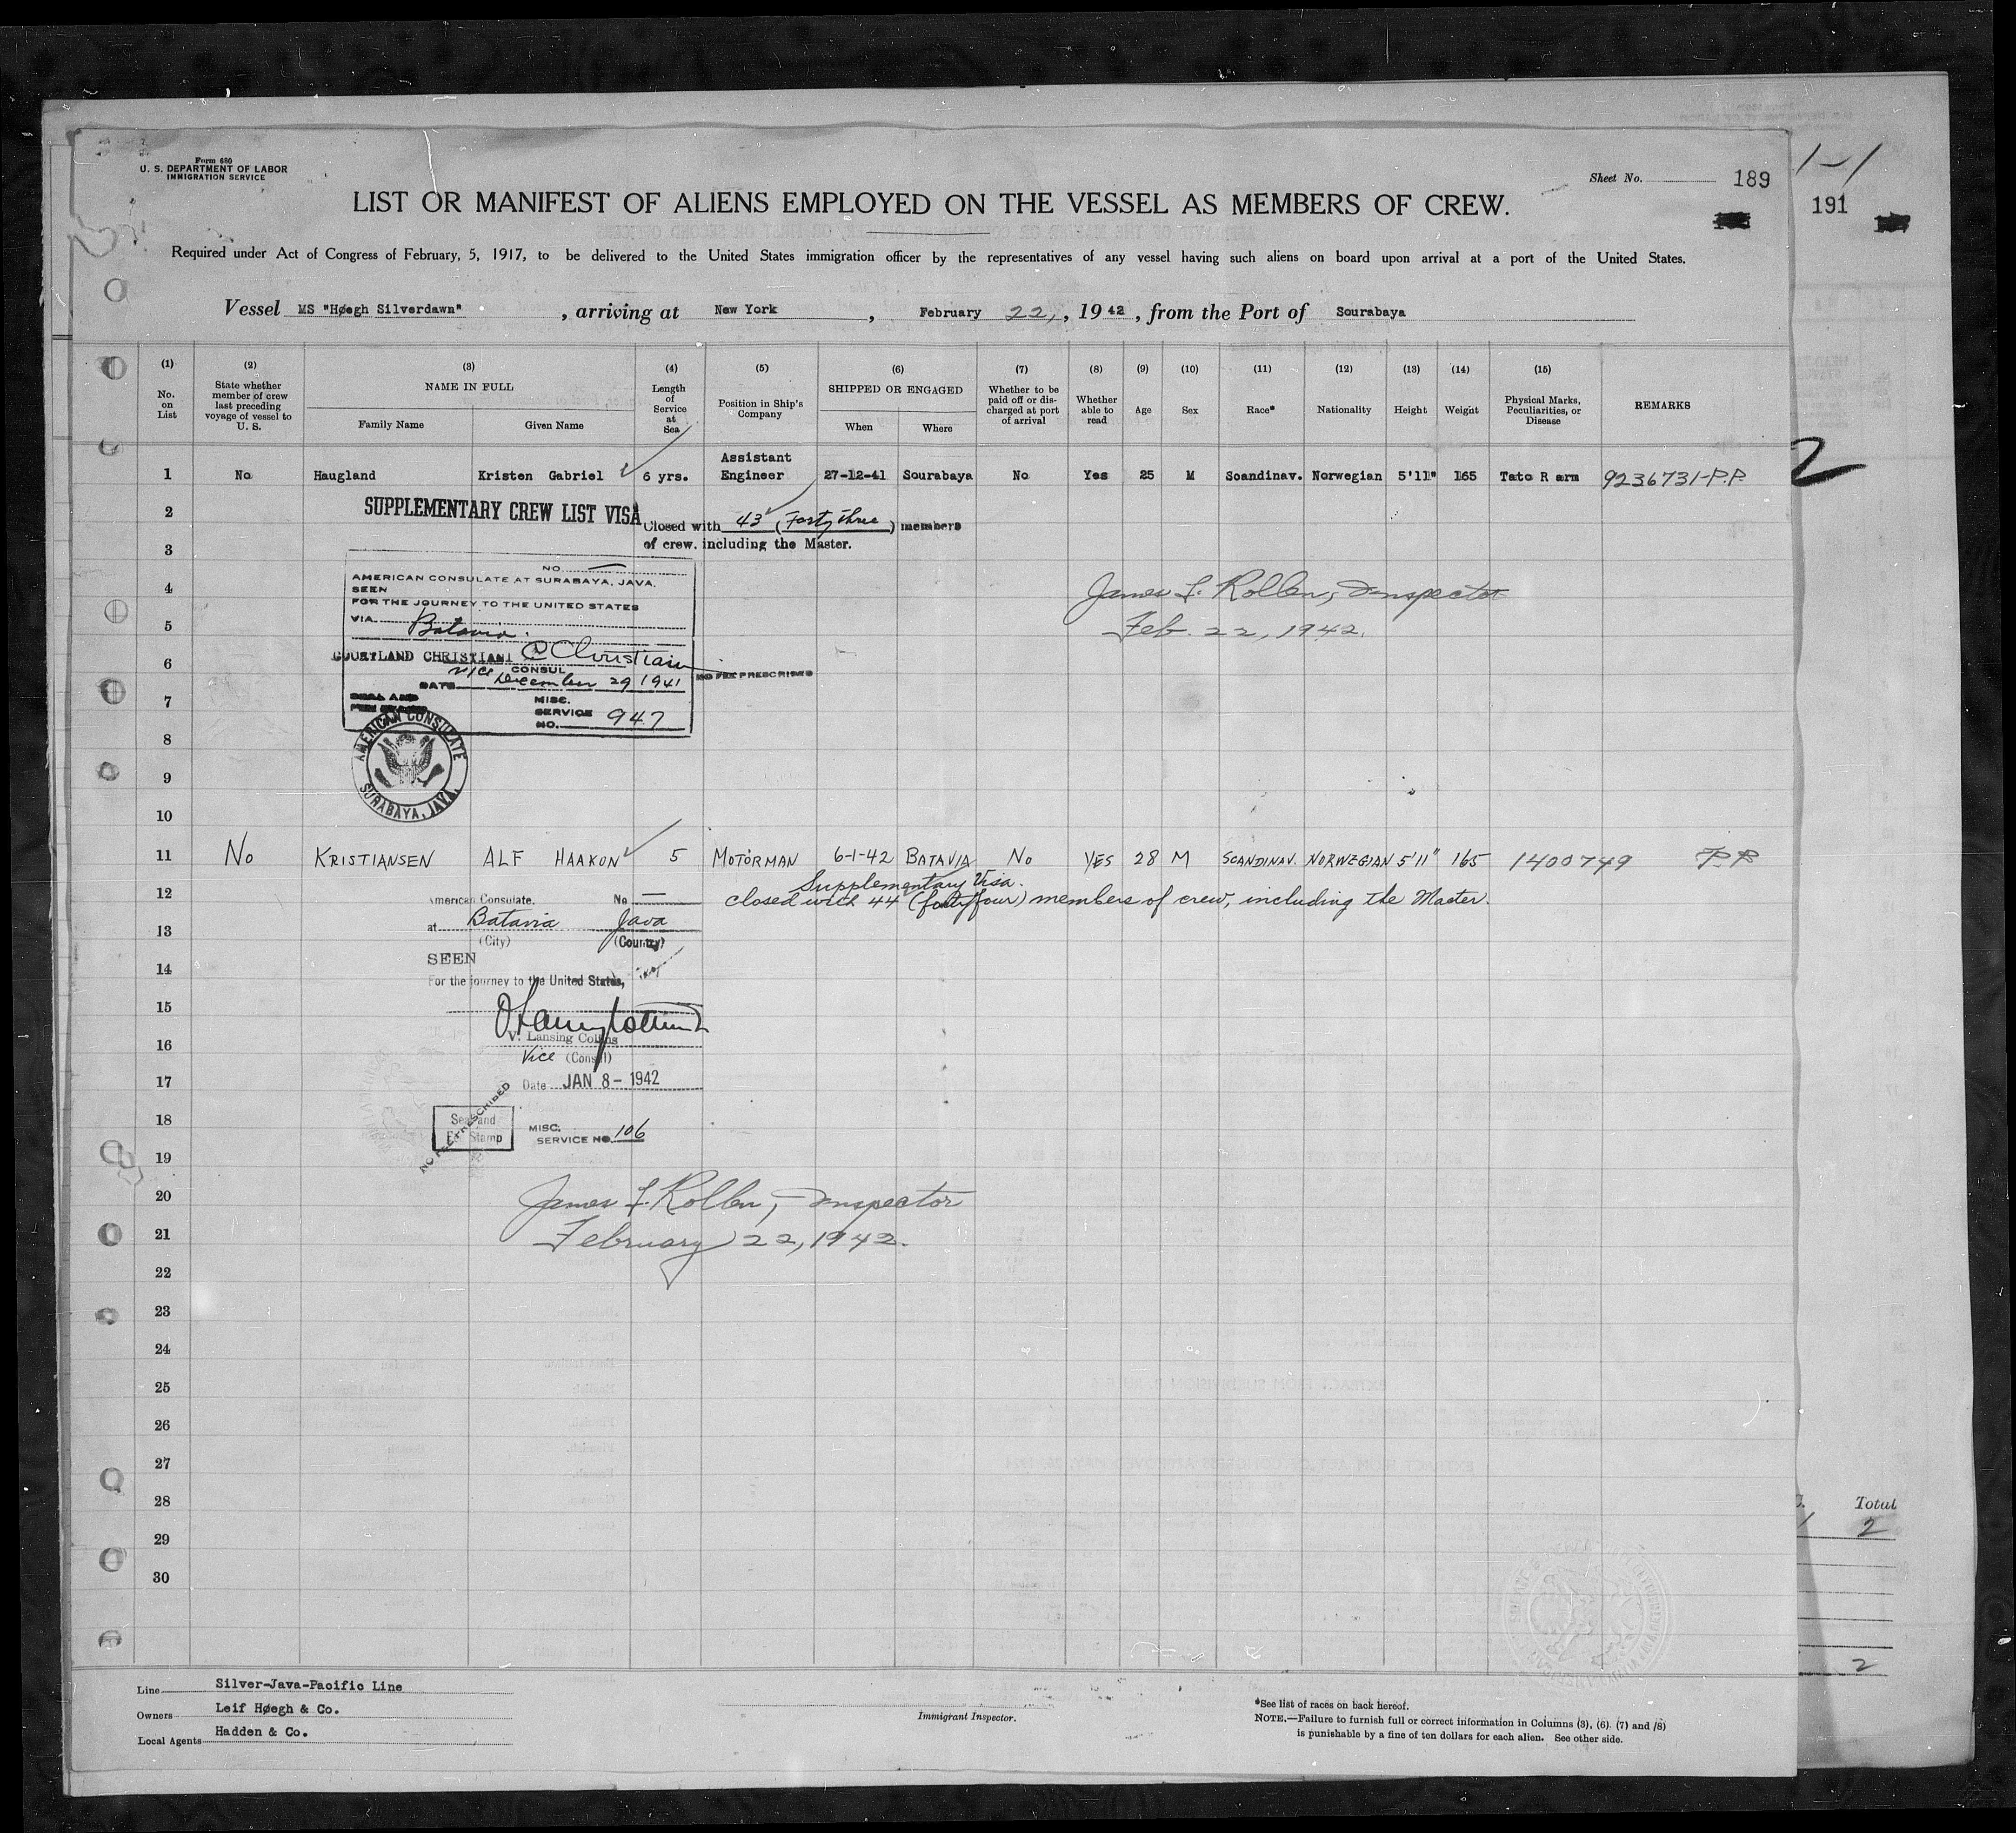 Form 680
U. S. DEPARTMENT OF LABOR
IMMIGRATION SERVICE
Sheet No. 189
1-1
191
LIST OR MANIFEST OF ALIENS EMPLOYED ON THE VESSEL AS MEMBERS OF CREW.
Required under Act of Congress of February, 5, 1917, to be delivered to the United States immigration officer by the representatives of any vessel having such aliens on board upon arrival at a port of the United States.
Vessel MS "Høegh Silverdawn", arriving at New York, February 22, 1942, from the Port of Sourabaya
(1) (2) (3) (4) (5) (6) (7) (8) (9) (10) (11) (12) (13) (14) (15)
No. on List
State whether member of crew last preceding voyage of vessel to U. S.
NAME IN FULL
Family Name Given Name
Length of Service at Sea
Position in Ship's Company
SHIPPED OR ENGAGED
When Where
Whether to be paid off or discharged at port of arrival
Whether able to read
Age
Sex
Race*
Nationality
Height
Weight
Physical Marks, Peculiarities, or Disease
REMARKS
1 No Haugland Kristen Gabriel 6 yrs. Assistant Engineer 27-12-41 Sourabaya No Yes 25 M Scandinav. Norwegian 5'11" 165 Tato R arm 9236731-P.P.
2
2 SUPPLEMENTARY CREW LIST VISA Closed with 43 (Forty three) members
3 of crew. including the Master.
NO. —
AMERICAN CONSULATE AT SURABAYA, JAVA.
4 SEEN
FOR THE JOURNEY TO THE UNITED STATES
VIA Batavia.
James F. Rollen, Inspector
5 Feb. 22, 1942.
6 COURTLAND CHRISTIANI C Christiani
vice CONSUL
NO FEE PRESCRIBED
DATE December 29 1941
7 SEAL AND
MISC. SERVICE NO. 947
8 AMERICAN CONSULATE
9 SURABAYA, JAVA.
10
11 No KRISTIANSEN ALF HAAKON 5 MOTORMAN 6-1-42 BATAVIA No YES 28 M SCANDINAV. NORWEGIAN 5'11" 165 1400749 P.P.
12 Supplementary Visa.
closed with 44 (forty four) members of crew, including the Master.
American Consulate. No. —
13 at Batavia Java
(City) (Country)
14 SEEN
For the journey to the United States,
15
16 V. Lansing Collins
Vice (Consul)
17 Date JAN 8 - 1942
NO FEE PRESCRIBED
18 Seal and
Fee Stamp
MISC. SERVICE NO. 106
19
20 James F. Rollen, Inspector
21 February 22, 1942.
22
23
24
25
26
27
28
29
30
Total
2
2
Line Silver-Java-Pacific Line
Owners Leif Høegh & Co.
Local Agents Hadden & Co.
Immigrant Inspector.
*See list of races on back hereof.
NOTE.—Failure to furnish full or correct information in Columns (3), (6), (7) and (8)
is punishable by a fine of ten dollars for each alien. See other side.